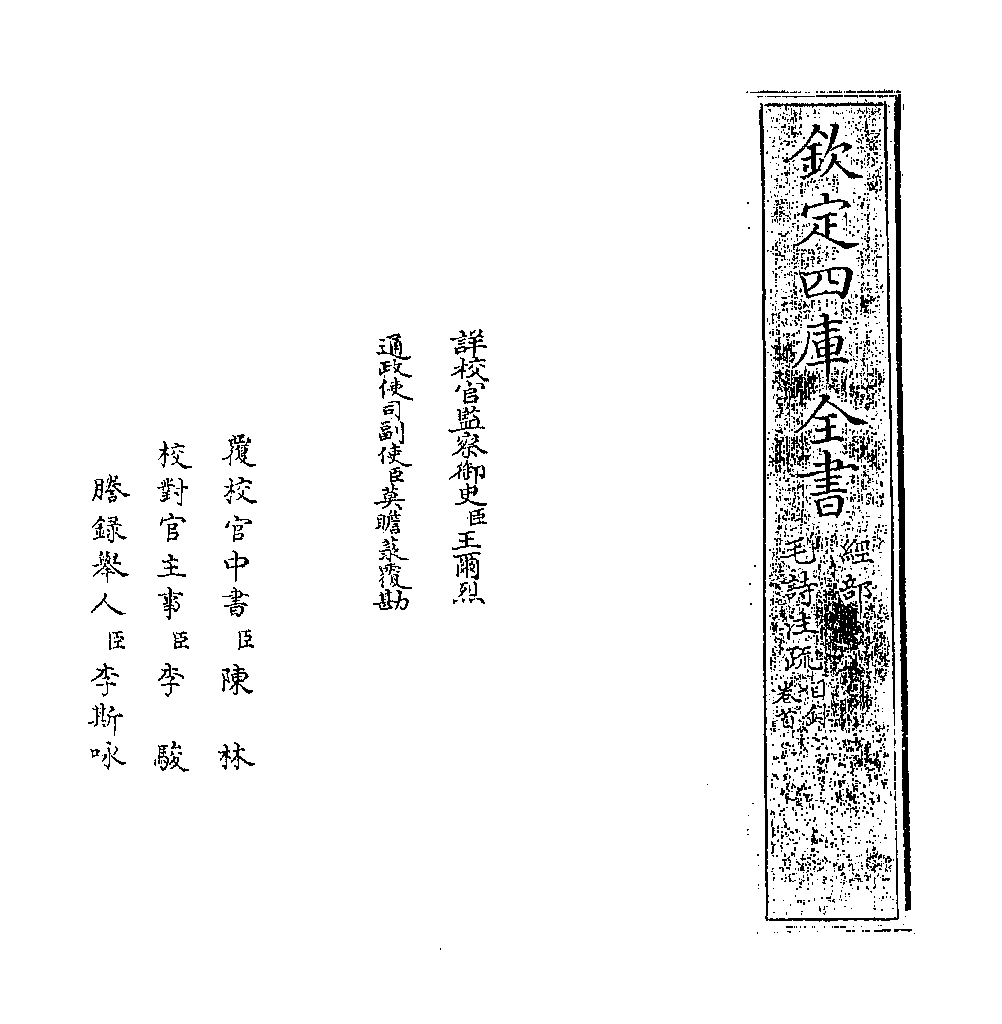 欽定四庫全書
經部
毛詩注疏目錄
卷首
詳校官監察御史臣王爾烈
通政使司副使臣莫瞻菉覆勘
覆校官中書臣陳林
校對官主事臣李駿
謄錄舉人臣李斯咏